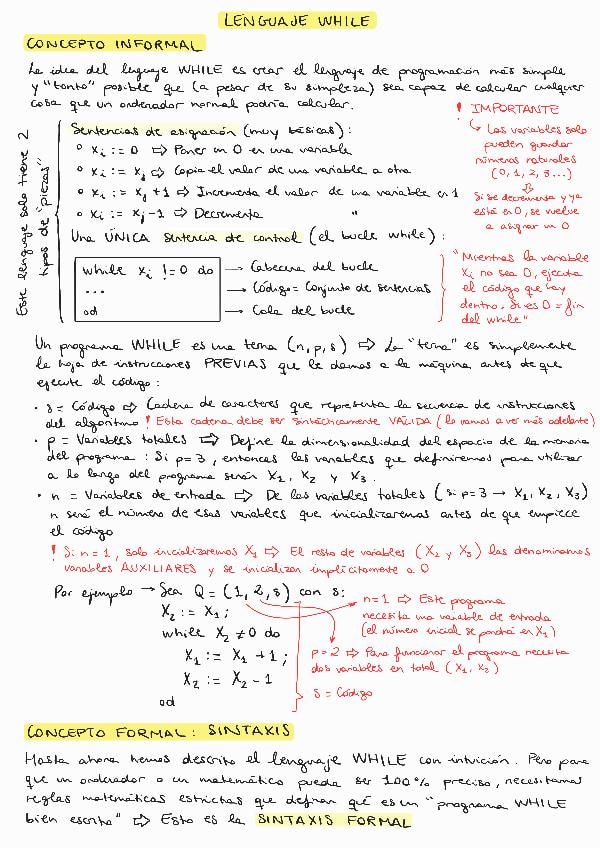 LENGUAJE WHILE
CONCEPTO INFORMAL
La idea del lenguaje WHILE es crear el lenguaje de programación más simple
y "tonto" posible que (a pesar de su simpleza) sea capaz de calcular cualquier
cosa que un ordenador normal podría calcular.
Este lenguaje solo tiene 2
tipos de "piezas"
Sentencias de asignación (muy básicas):
° Xi := 0 ⇨ Poner un 0 en una variable
° Xi := Xj ⇨ Copia el valor de una variable a otra
° Xi := Xj + 1 ⇨ Incrementa el valor de una variable en 1
° Xi := Xj - 1 ⇨ Decrementa "
! IMPORTANTE
↳ Las variables solo
pueden guardar
números naturales
(0, 1, 2, 3...)
⇩
Si se decrementa y ya
está en 0, se vuelve
a asignar un 0
Una ÚNICA sentencia de control (el bucle while):
while Xi != 0 do → Cabecera del bucle
... → Código = Conjunto de sentencias
od → Cola del bucle
"Mientras la variable
Xi no sea 0, ejecuta
el código que hay
dentro. Si es 0 = fin
del while"
Un programa WHILE es una terna (n, p, s) ⇨ La "terna" es simplemente
la hoja de instrucciones PREVIAS que le damos a la máquina antes de que
ejecute el código:
· s = Código ⇨ Cadena de caracteres que representa la secuencia de instrucciones
del algoritmo ! Esta cadena debe ser sintácticamente VÁLIDA (lo vamos a ver más adelante)
· p = Variables totales ⇨ Define la dimensionalidad del espacio de la memoria
del programa: Si p = 3, entonces las variables que definiremos para utilizar
a lo largo del programa serán X1, X2 y X3.
· n = Variables de entrada ⇨ De las variables totales (si p=3 → X1, X2, X3)
n será el número de esas variables que inicializaremos antes de que empiece
el código
! Si n = 1, solo inicializaremos X1 ⇨ El resto de variables (X2 y X3) las denominamos
variables AUXILIARES y se inicializan implícitamente a 0
Por ejemplo → Sea Q = (1, 2, s) con s:
X2 := X1;
while X2 ≠ 0 do
X1 := X1 + 1;
X2 := X2 - 1
od
n = 1 ⇨ Este programa
necesita una variable de entrada
(el número inicial se pondrá en X1)
p = 2 ⇨ Para funcionar el programa necesita
dos variables en total (X1, X2)
s = Código
CONCEPTO FORMAL: SINTAXIS
Hasta ahora hemos descrito el lenguaje WHILE con intuición. Pero para
que un ordenador o un matemático pueda ser 100% preciso, necesitamos
reglas matemáticas estrictas que definan qué es un "programa WHILE
bien escrito" ⇨ Esto es la SINTAXIS FORMAL